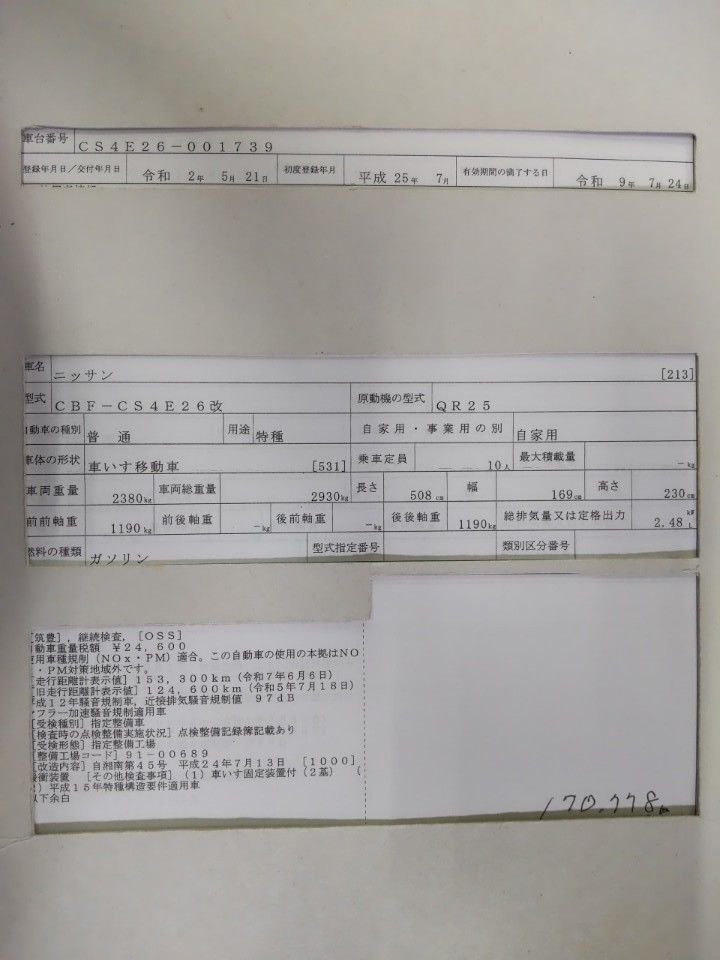 車台番号 CS4E26-001739
登録年月日/交付年月日 令和 2年 5月 21日 初度登録年月 平成 25年 7月 有効期間の満了する日 令和 9年 7月 24日
車名 ニッサン [213]
型式 CBF-CS4E26改 原動機の型式 QR25
自動車の種別 普通 用途 特種 自家用・事業用の別 自家用
車体の形状 車いす移動車 [531] 乗車定員 10人 最大積載量 -kg
車両重量 2380kg 車両総重量 2930kg 長さ 508cm 幅 169cm 高さ 230cm
前前軸重 1190kg 前後軸重 -kg 後前軸重 -kg 後後軸重 1190kg 総排気量又は定格出力 2.48 kW L
燃料の種類 ガソリン 型式指定番号 類別区分番号
[筑豊],継続検査,[OSS]
自動車重量税額 ¥24,600
使用車種規制(NOx・PM)適合。この自動車の使用の本拠はNO
x・PM対策地域外です。
[走行距離計表示値]153,300km(令和7年6月6日)
[旧走行距離計表示値]124,600km(令和5年7月18日)
平成12年騒音規制車,近接排気騒音規制値 97dB
マフラー加速騒音規制適用車
[受検種別]指定整備車
[検査時の点検整備実施状況]点検整備記録簿記載あり
[受検形態]指定整備工場
[整備工場コード]91-00689
[改造内容]自湘南第45号 平成24年7月13日 [1000]
緩衝装置 [その他検査事項](1)車いす固定装置付(2基) (
2)平成15年特種構造要件適用車
以下余白
170,778㎞